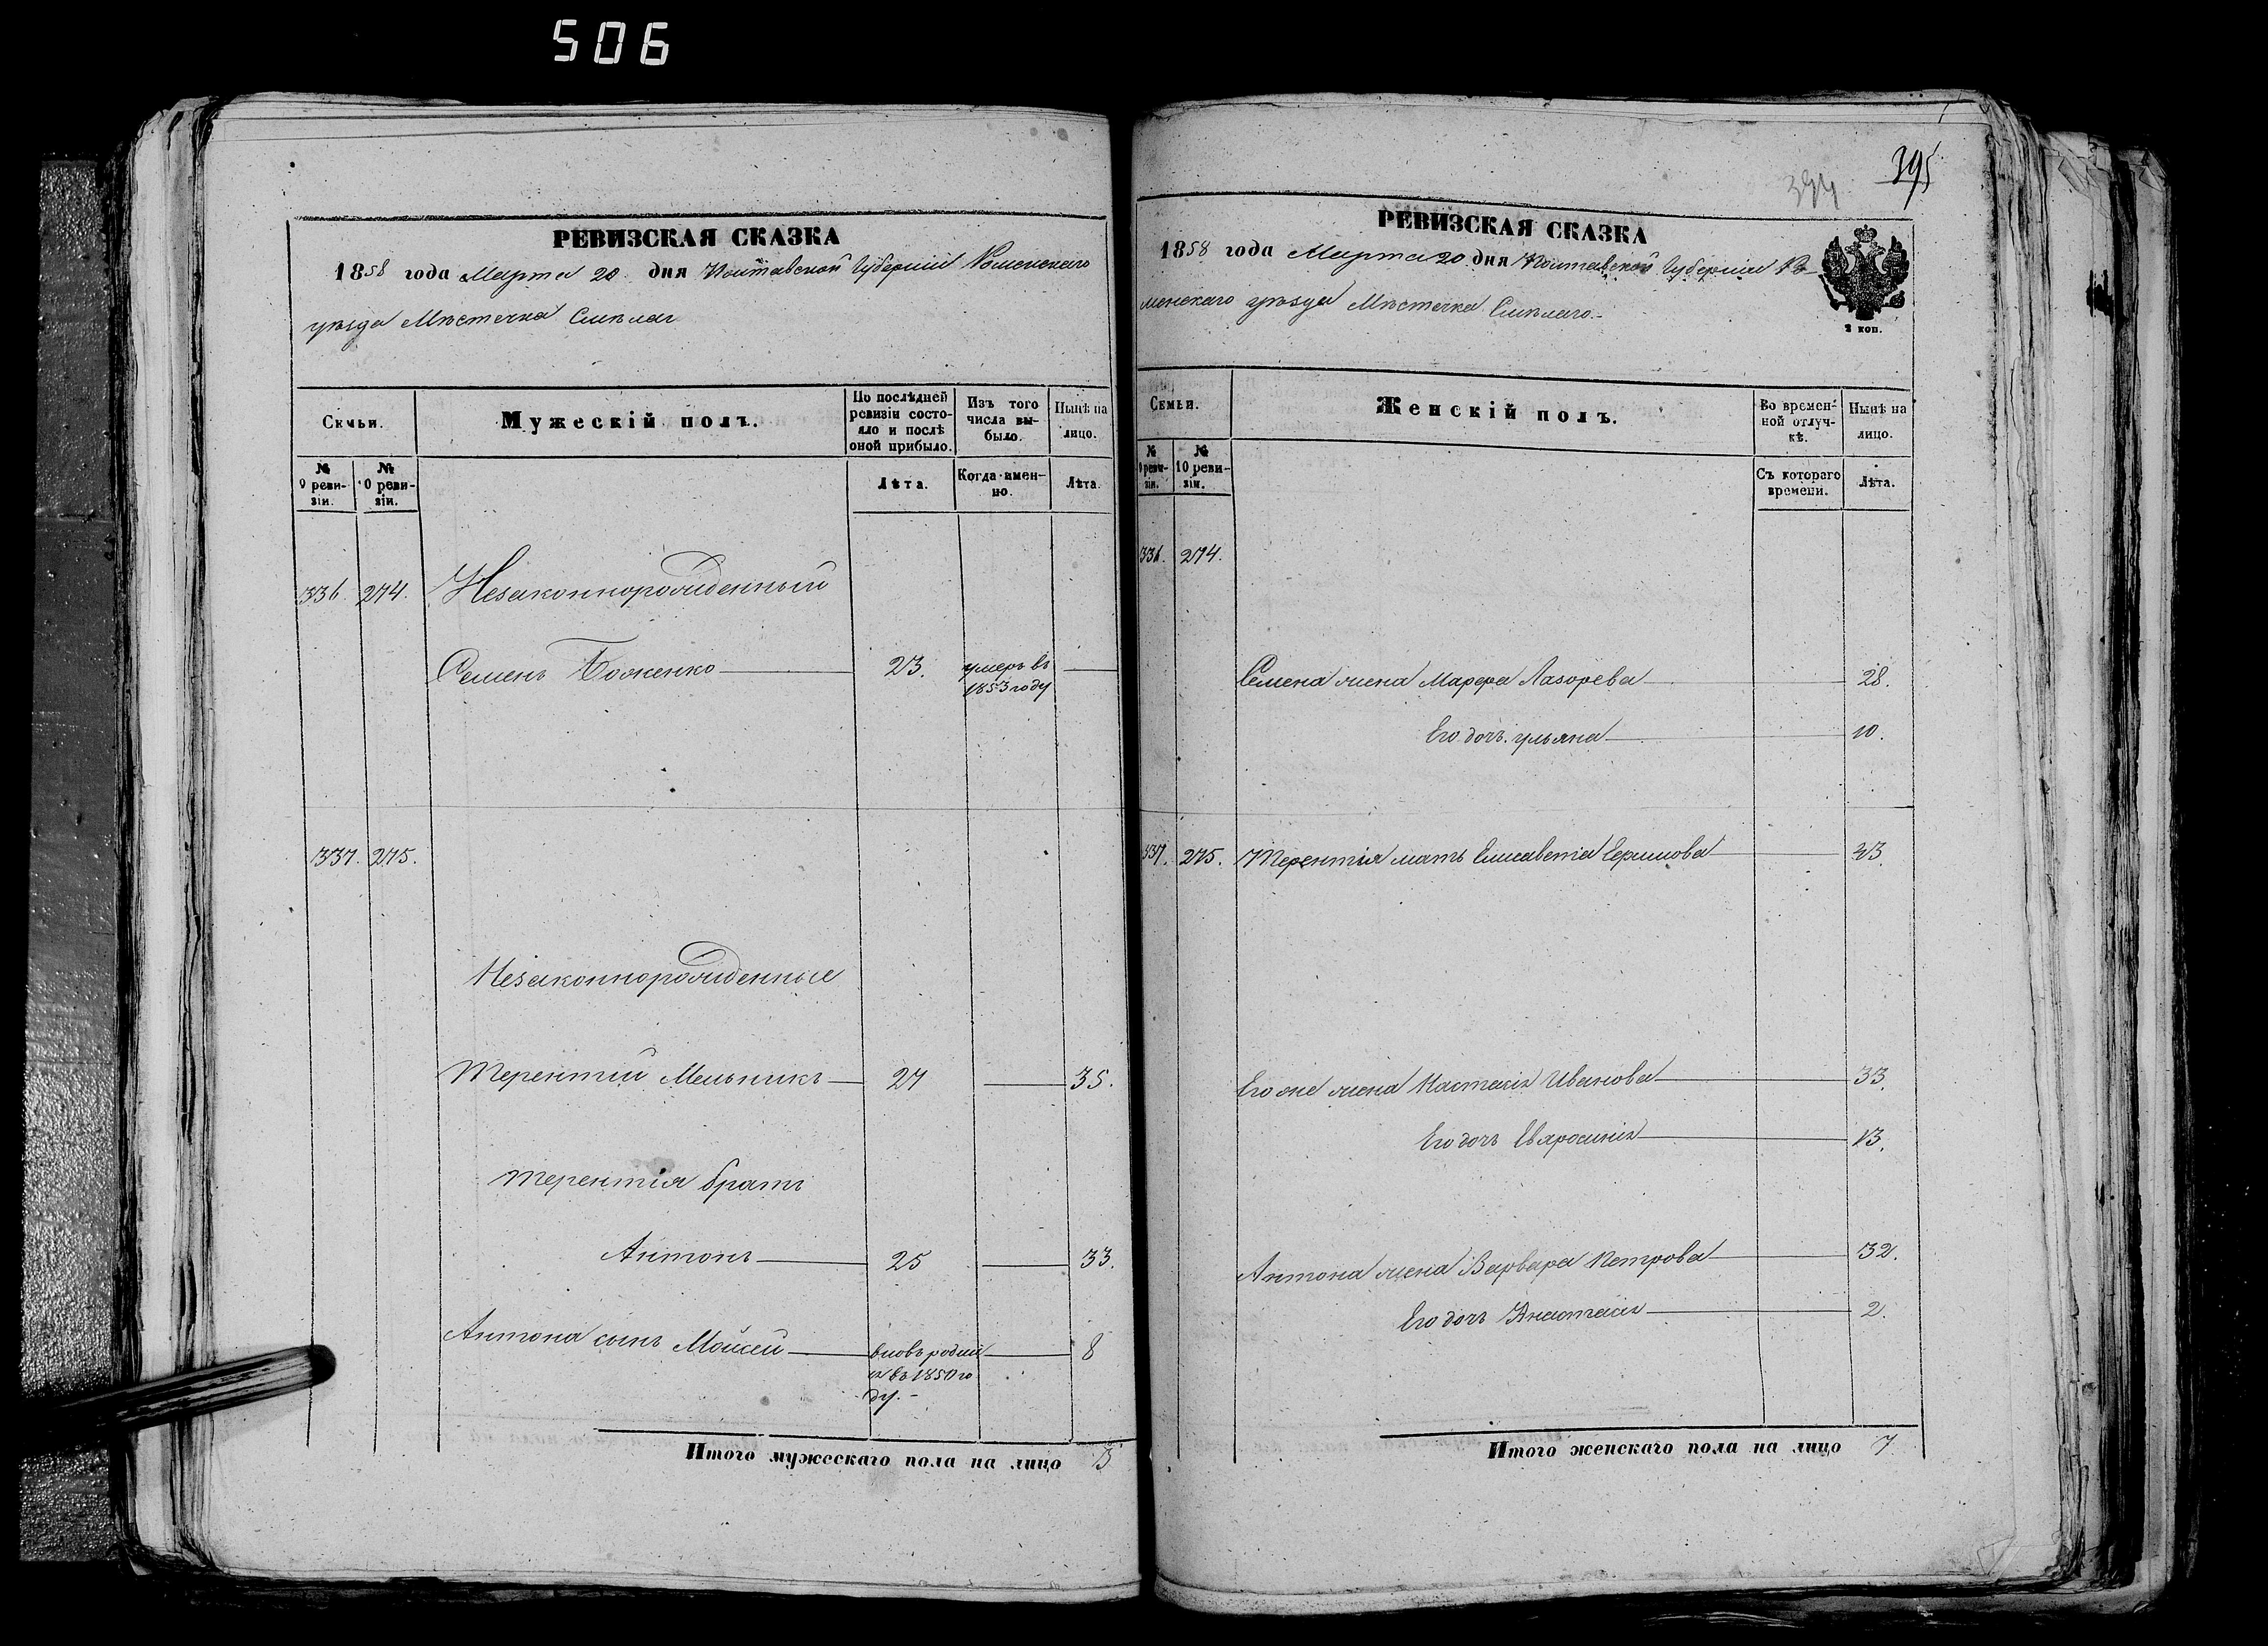 506
РЕВИЗСКАЯ СКАЗКА
1858 года Марта 20 дня Полтавской Губерніи Роменскаго
уѣзда Мѣстечка Смѣлаг
Семьи.
Мужескій полъ.
По послѣдней ревизіи состояло и послѣ оной прибыло.
Изъ того числа выбыло.
Нынѣ на лицо.
№ 9 ревизіи.
№ 10 ревизіи.
Лѣта.
Когда именно.
Лѣта.
336. 274. Незаконнорожденный
Семенъ Боженко 23. умеръ въ
1853 году
337. 275.
Незаконнорожденные
Терентій Мельникъ 27 35.
Терентія братъ
Антонъ 25 33.
Антона сынъ Мойсей вновь родил 8
ся въ 1850 го
ду.-
Итого мужескаго пола на лицо 3
394 395
РЕВИЗСКАЯ СКАЗКА
1858 года Марта 20 дня Полтавской Губерніи Ро-
менскаго уѣзда Мѣстечка Смѣлаго.-
2 коп.
Семьи.
Женскій полъ.
Во временной отлучкѣ.
Нынѣ на лицо.
№ 9 ревизіи.
№ 10 ревизіи.
Съ котораго времени.
Лѣта.
336. 274.
Семена жена Марфа Лазорева 28.
Его дочь Ульяна 10.
337. 275. Терентія мать Елисавета 
Его же жена Настасія Иванова 33.
Его дочь Евфросинія 13.
Антона жена Варвара Петрова 32.
Его дочь Анастасія 2.
Итого женскаго пола на лицо 7